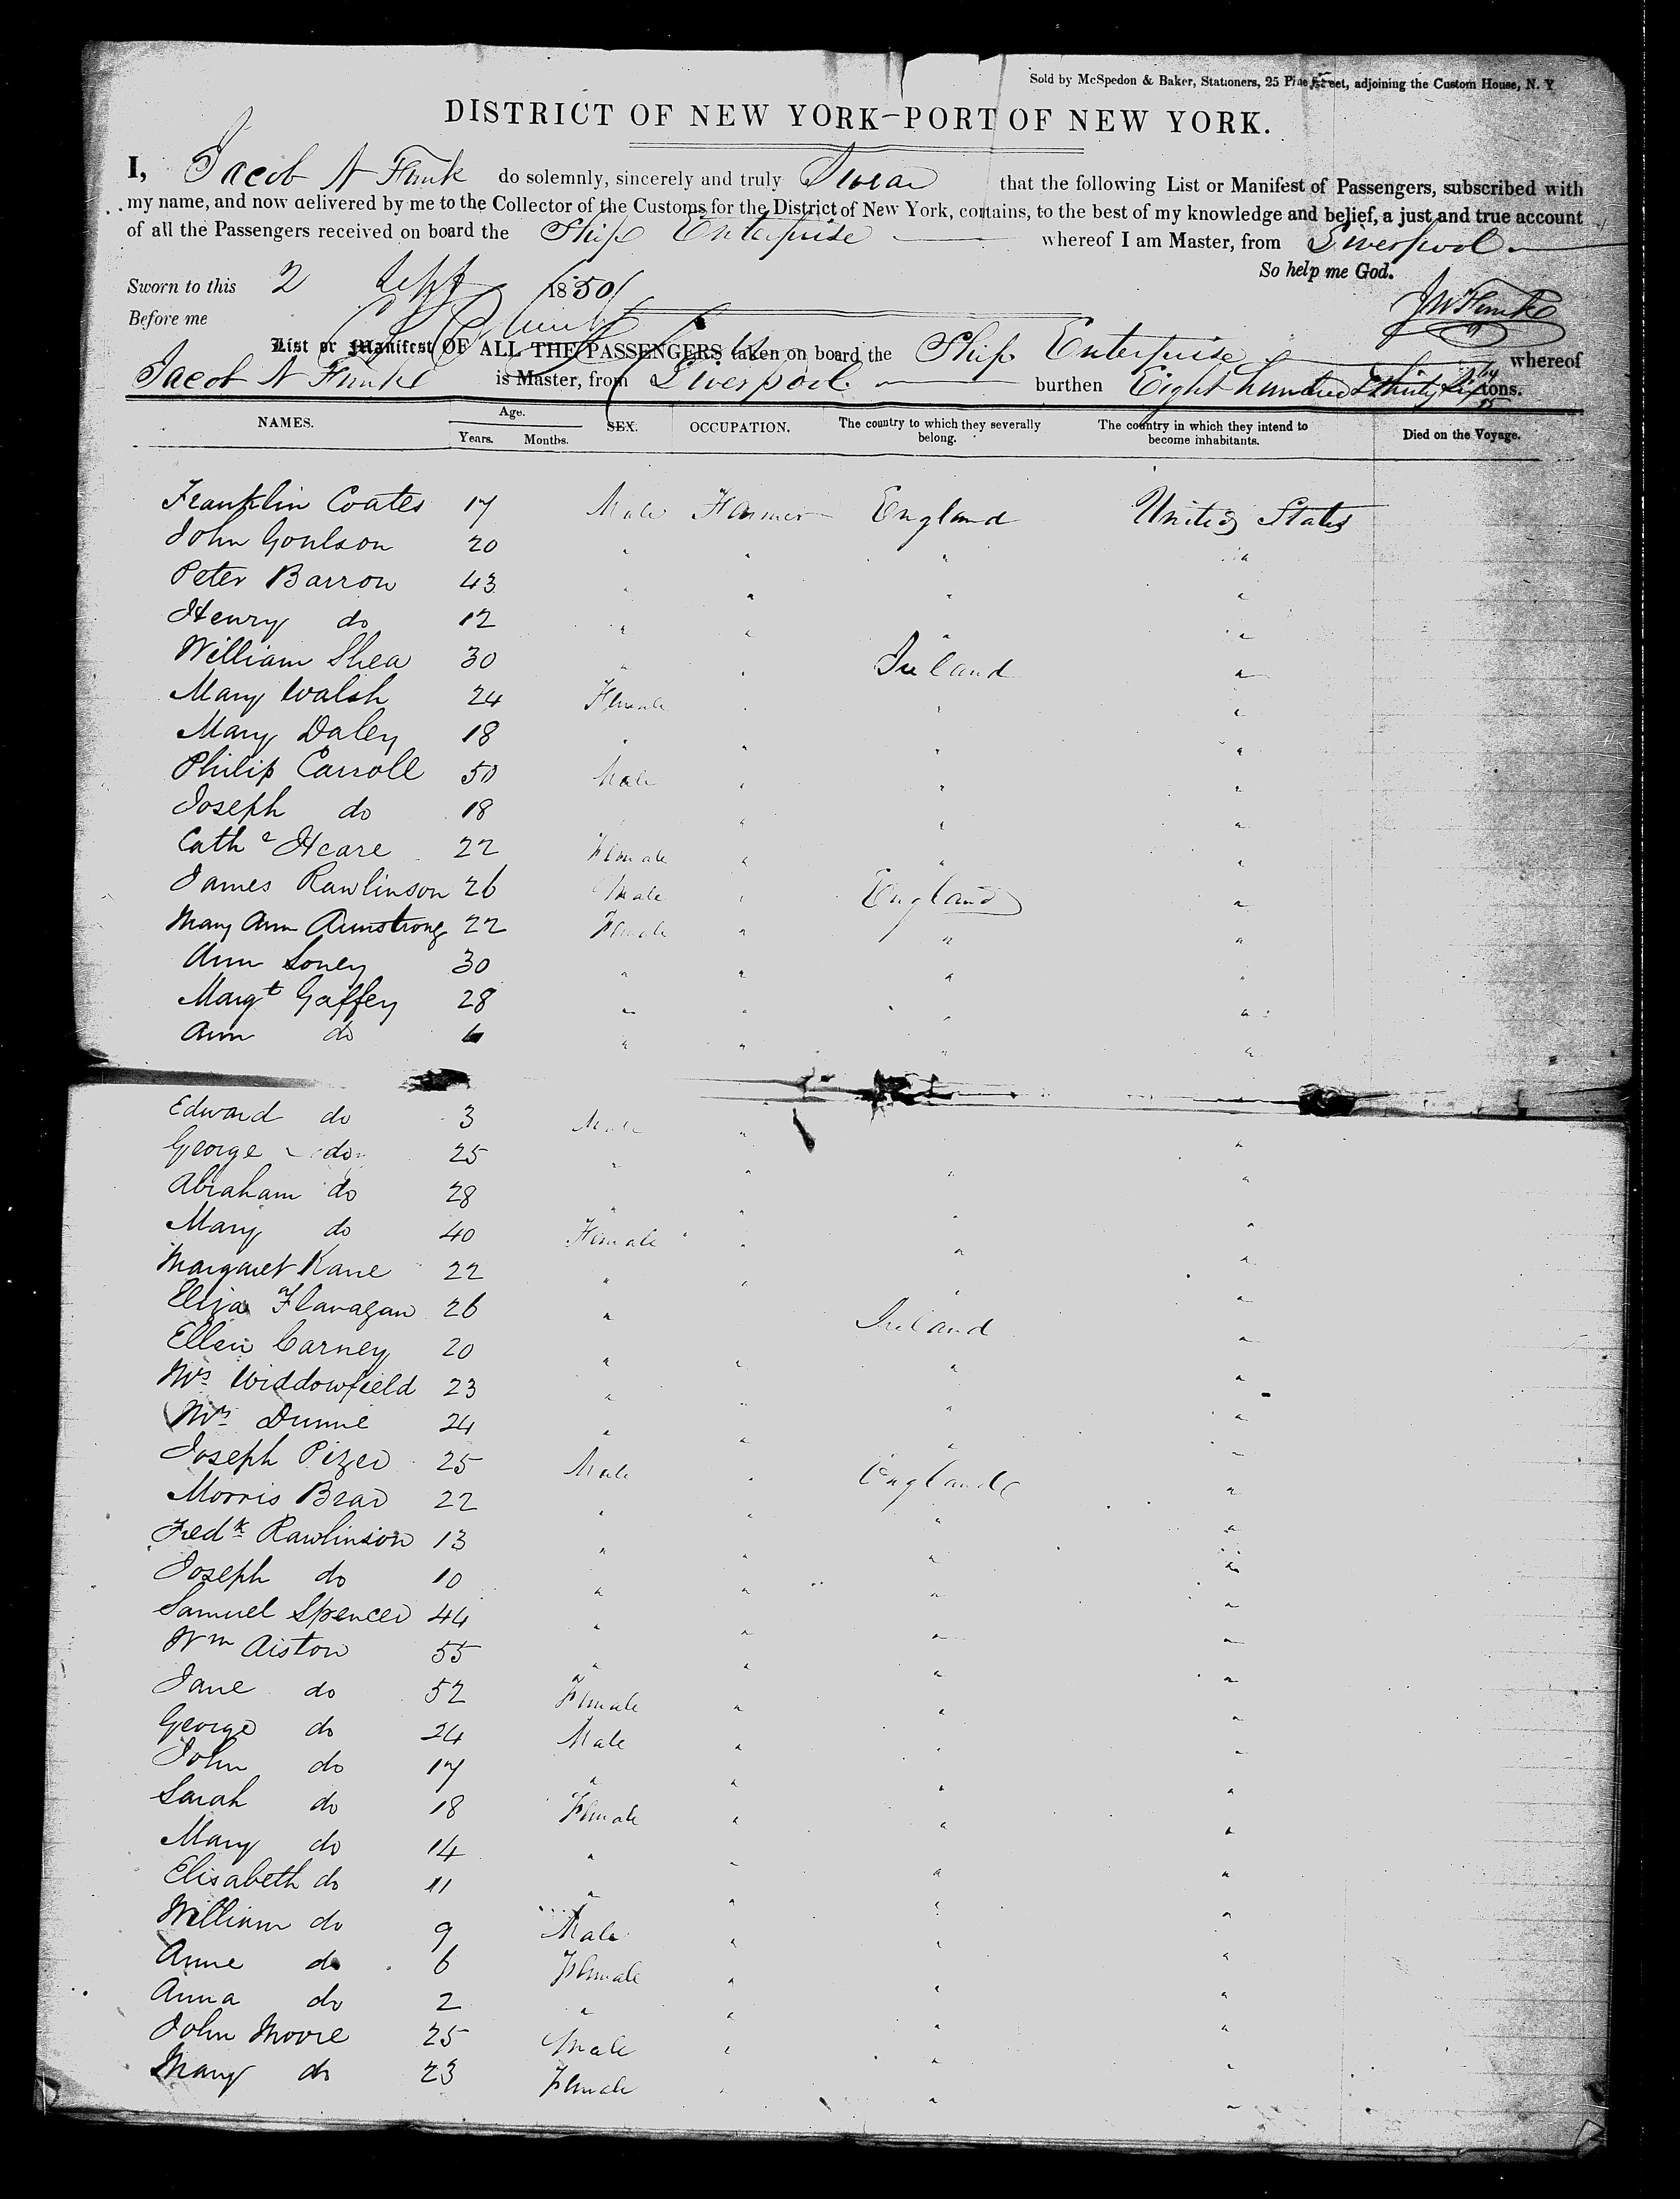 Sold by McSpedon & Baker, Stationers, 25 Pine Street, adjoining the Custom House, N. Y
DISTRICT OF NEW YORK-PORT OF NEW YORK.
I, Jacob N Funk do solemnly, sincerely and truly Swear that the following List or Manifest of Passengers, subscribed with
my name, and now delivered by me to the Collector of the Customs for the District of New York, contains, to the best of my knowledge and belief, a just and true account
of all the Passengers received on board the Ship Enterprise whereof I am Master, from Liverpool
So help me God.
Sworn to this 2 Sept 1850
Before me
List or Manifest OF ALL THE PASSENGERS taken on board the Ship Enterprise whereof
Jacob N Funk is Master, from Liverpool burthen Eight hundred & thirty tons.
NAMES. Age. Years. Months. SEX. OCCUPATION. The country to which they severally belong. The country in which they intend to become inhabitants. Died on the Voyage.
Franklin Coates 17 Male Farmer England United States
John Goulson 20 " " " "
Peter Barrow 43 " " " "
Henry do 12 " " " "
William Shea 30 " " Ireland "
Mary Walsh 24 Female " " "
Mary Daley 18 " " " "
Philip Carroll 50 Male " " "
Joseph do 18 " " "
Cath e Hcare 22 Female " " "
James Rawlinson 26 Male " England "
Mary Ann Armstrong 22 Female " " "
Ann Soney 30 " " " "
Margt Gaffey 28 " " " "
Ann do 6 " " " "
Edward do 3 Male " "
George do 25 " " " "
Abraham do 28 " " " "
Mary do 40 Female " " "
Margaret Kane 22 " " " "
Eliza Flanagan 26 " Ireland "
Ellen Carney 20 " " " "
Mrs Widdowfield 23 " " " "
Mrs Dunne 24 " " " "
Joseph Pizer 25 Male " England "
Morris Brad 22 " " " "
Fredk Rawlinson 13 " " " "
Joseph do 10 " " " "
Samuel Spencer 44 " " " "
Wm Aiston 55 " " " "
Jane do 52 Female " " "
George do 24 Male " " "
John do 17 " " " "
Sarah do 18 Female " " "
Mary do 14 " " " "
Elisabeth do 11 " " " "
William do 9 Male " " "
Anne do 6 Female " " "
Anna do 2 " " " "
John Moore 25 Male " " "
Mary do 23 Female " " "